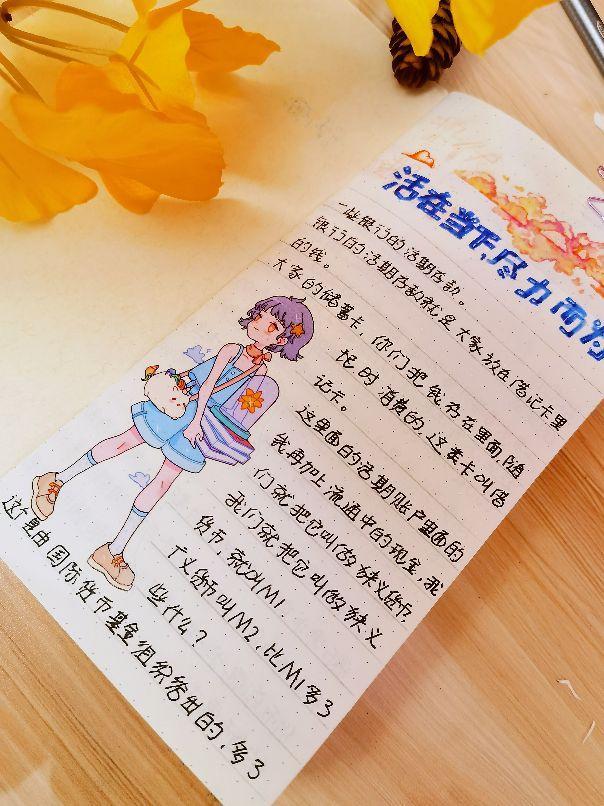 活在当下,尽力而为
一般银行的活期存款。
银行的活期存款就是大家放在借记卡里
的钱。
大家的储蓄卡,你们把钱存在里面,随
时的消费的,这类卡叫借
记卡。
这里面的活期账户里面的
钱再加上流通中的现金,我
们就把它叫做狭义货币.
我们就把它叫做狭义
货币,就叫M1
广义货币叫M2,比M1多了
些什么?
这个是由国际货币基金组织给出的,多了